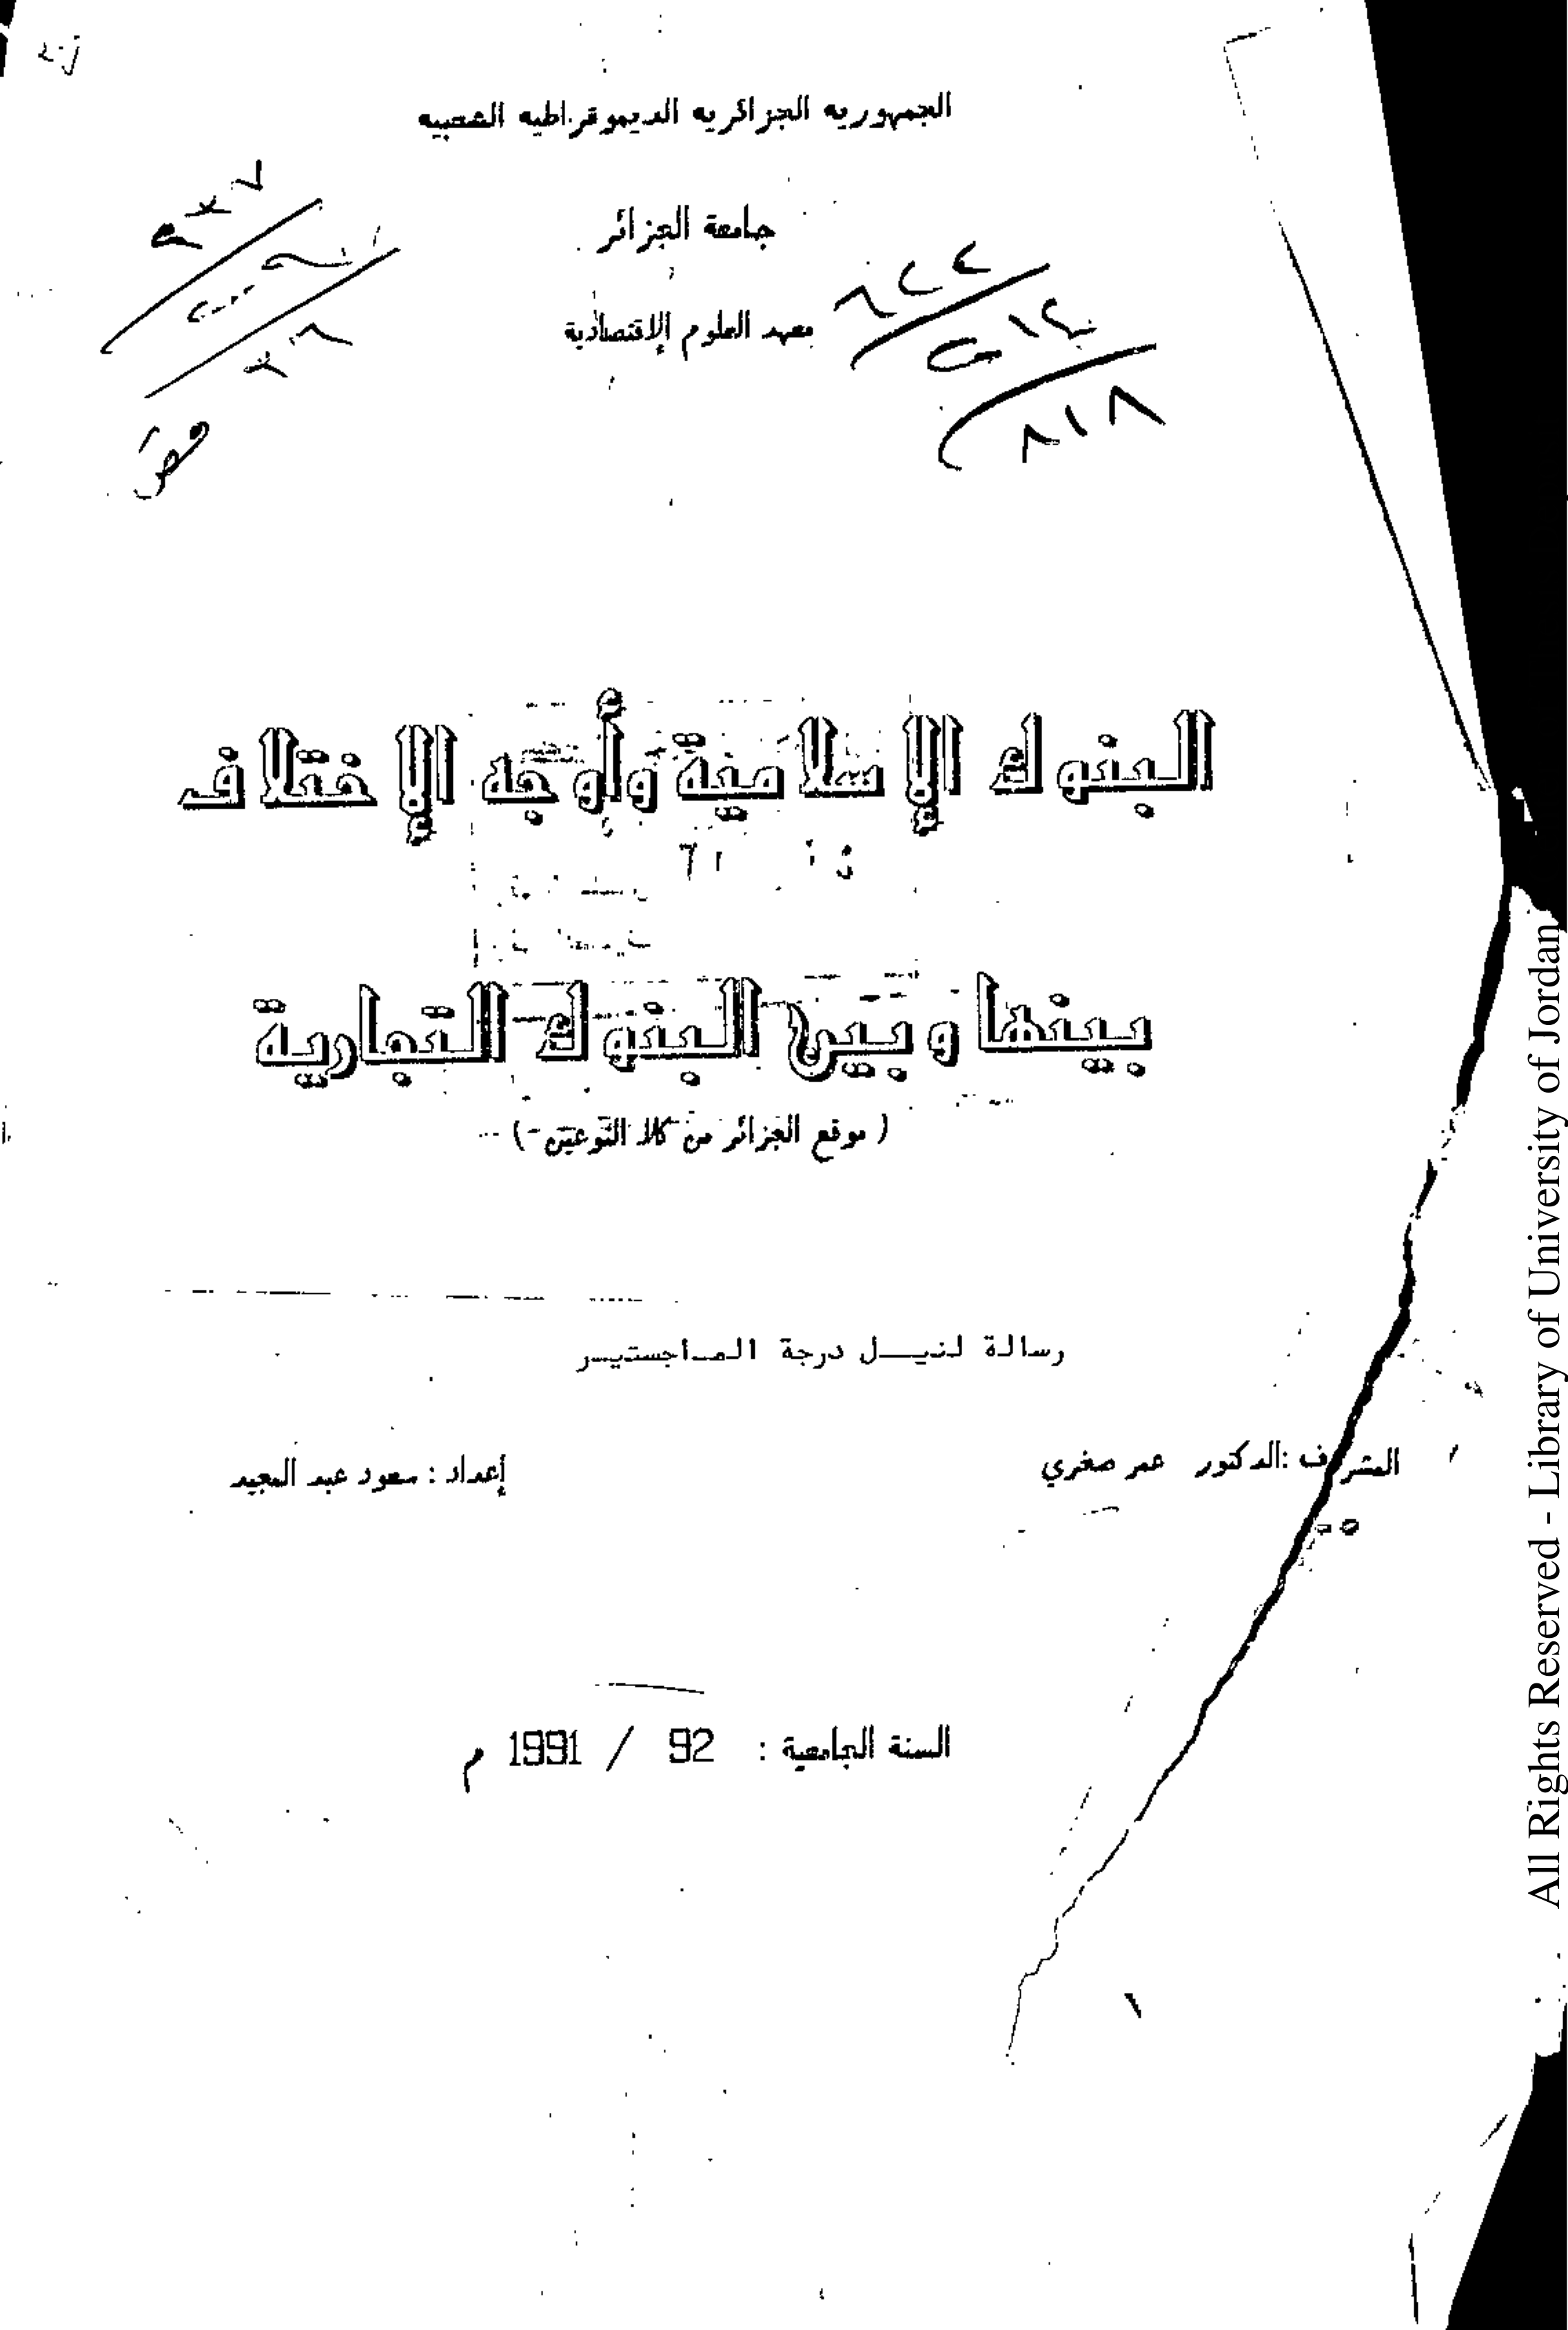 الجمهوريه الجزائريه الديموقراطيه الشعبيه
جامعة الجزائر
معهد العلوم الإقتصادية
البنوك الإسلامية وأوجه الإختلاف
بينها وبين البنوك التجارية
( موقع الجزائر من كلا النوعين )
رسالة لنيــل درجة المـاجستيـر
المشرف :الدكتور عمر صغري
إعداد : سعود عبد المجيد
السنة الجامعية : 92 / 1991 م
All Rights Reserved - Library of University of Jordan